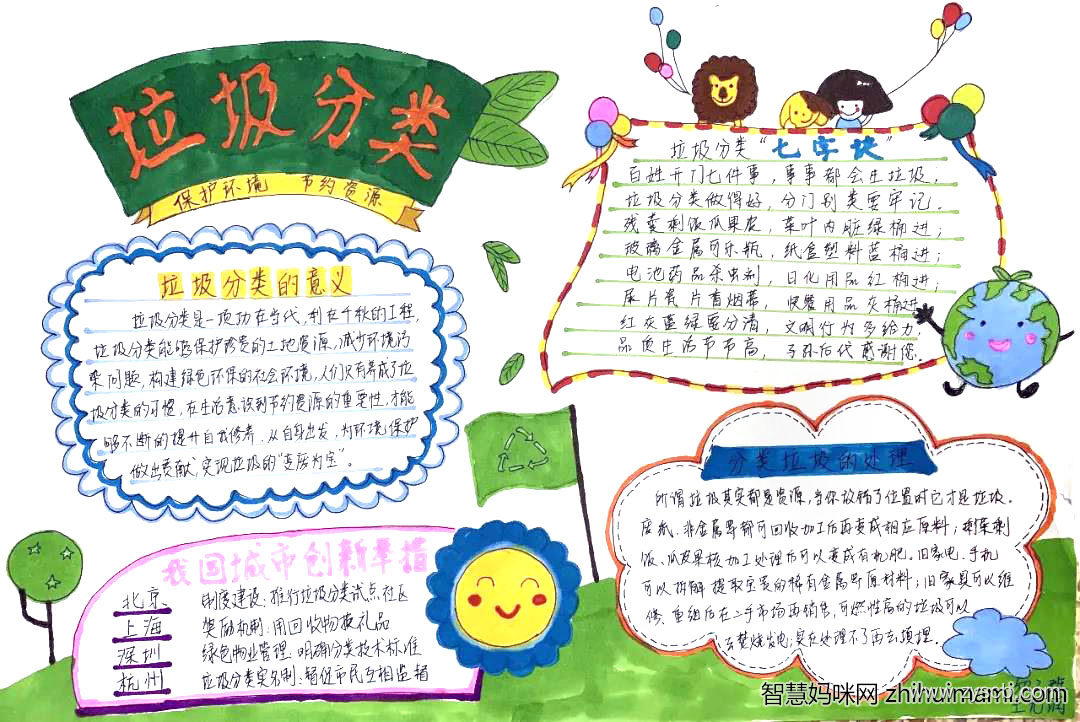 垃圾分类
保护环境 节约资源
垃圾分类的意义
垃圾分类是一项功在当代,利在千秋的工程,
垃圾分类能够保护珍贵的土地资源,减少环境污
染问题,构建绿色环保的社会环境,人们只有养成了垃
圾分类的习惯,在生活意识到节约资源的重要性,才能
够不断的提升自我修养,从自身出发,为环境保护
做出贡献,实现垃圾的“变废为宝”。
我国城市创新举措
北京、 制度建设:推行垃圾分类试点社区
上海 奖励机制:用回收物换礼品
深圳 绿色物业管理:明确分类技术标准
杭州 垃圾分类实名制:督促市民互相监督
垃圾分类“七字诀”
百姓开门七件事,事事都会生垃圾,
垃圾分类做得好,分门别类要牢记。
残羹剩饭瓜果皮,菜叶内脏绿桶进;
玻璃金属可乐瓶,纸盒塑料蓝桶进;
电池药品杀虫剂,日化用品红桶进;
尿片瓷片香烟蒂,快餐用品灰桶进,
红灰蓝绿要分清,文明行为多给力,
品质生活节节高,子孙后代感谢您。
分类垃圾的处理
所谓垃圾其实都是资源,当你放错了位置时它才是垃圾。
废纸、非金属等都可回收加工后再变成相应原料;剩菜剩
饭、瓜皮果核加工处理后可以变成有机肥,旧家电、手机
可以拆解提取宝贵的稀有金属等原材料;旧家具可以维
修、重组后在二手市场再销售,可燃性高的垃圾可以
去焚烧发电;实在处理不了再去填埋。
智慧妈咪网 zhihuimami.com